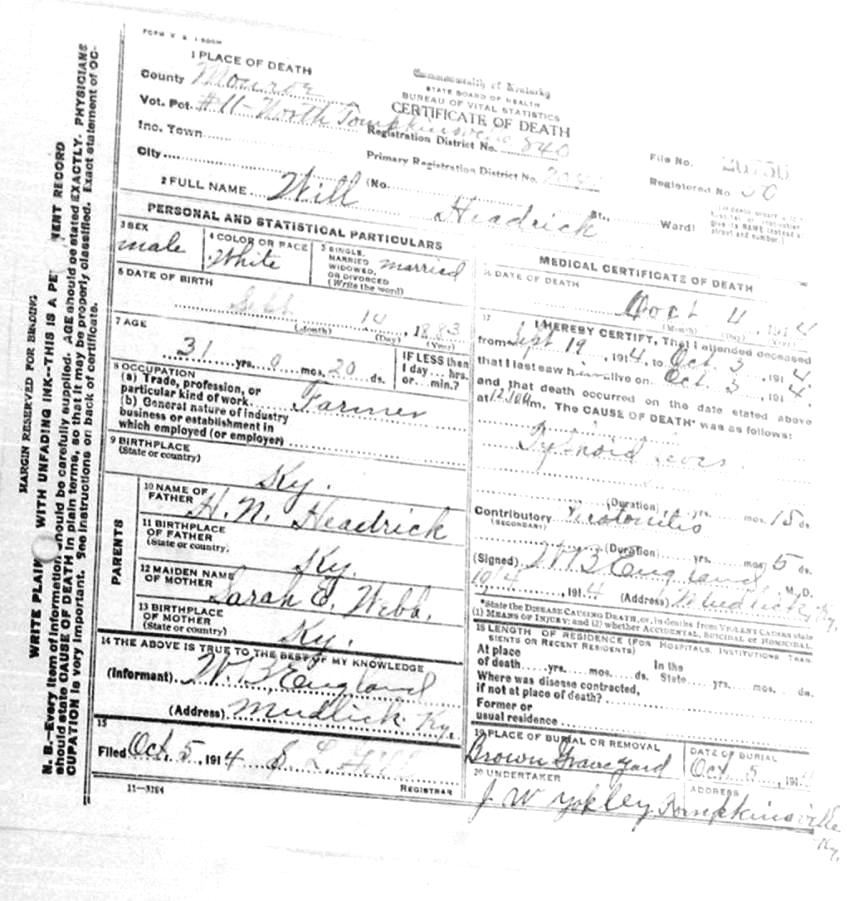 1 PLACE OF DEATH
County Monroe
Vot. Pct. #11-North Tompkinsville
Inc. Town
City
Commonwealth of Kentucky
STATE BOARD OF HEALTH
BUREAU OF VITAL STATISTICS
CERTIFICATE OF DEATH
Registration District No. 840
Primary Registration District No.
File No.
Registered No. 50
(No. St., Ward)
2 FULL NAME Will Headrick
PERSONAL AND STATISTICAL PARTICULARS
3 SEX
male
4 COLOR OR RACE
White
5 SINGLE,
MARRIED
WIDOWED,
OR DIVORCED
(Write the word)
married
6 DATE OF BIRTH
14, 1883
(Month) (Day) (Year)
7 AGE
31 yrs. 0 mos. 20 ds.
IF LESS than
1 day... hrs.
or... min.?
8 OCCUPATION
(a) Trade, profession, or
particular kind of work Farmer
(b) General nature of industry
business or establishment in
which employed (or employer)
9 BIRTHPLACE
(State or country)
Ky.
PARENTS
10 NAME OF
FATHER
H. N. Headrick
11 BIRTHPLACE
OF FATHER
(State or country)
Ky.
12 MAIDEN NAME
OF MOTHER
Sarah E. Webb.
13 BIRTHPLACE
OF MOTHER
(State or country)
Ky.
14 THE ABOVE IS TRUE TO THE BEST OF MY KNOWLEDGE
(Informant) W. B England
(Address) Mudlick Ky.
15
Filed Oct. 5, 1914
REGISTRAR
11-3184
MEDICAL CERTIFICATE OF DEATH
16 DATE OF DEATH
Oct 4, 1914
(Month) (Day) (Year)
17 I HEREBY CERTIFY, That I attended deceased
from Sept 19, 1914, to Oct. 3, 1914,
that I last saw h alive on Oct. 3, 1914,
and that death occurred on the date stated above
at m. The CAUSE OF DEATH* was as follows:
Typhoid fever
(Duration) yrs. mos. 15 ds.
Contributory
(SECONDARY)
(Duration) yrs. mos. 5 ds.
(Signed) W B England M. D.
10/4, 1914 (Address) Mudlick, Ky.
*State the DISEASE CAUSING DEATH, or, in deaths from VIOLENT CAUSES state
(1) MEANS OF INJURY; and (2) whether ACCIDENTAL, SUICIDAL or HOMICIDAL.
18 LENGTH OF RESIDENCE (FOR HOSPITALS, INSTITUTIONS, TRANSIENTS OR RECENT RESIDENTS)
At place
of death yrs. mos. ds.
In the
State yrs. mos. ds.
Where was disease contracted,
if not at place of death?
Former or
usual residence
19 PLACE OF BURIAL OR REMOVAL
Brown Graveyard
DATE OF BURIAL
Oct 5, 1914
20 UNDERTAKER
J W Yokley
ADDRESS
Tompkinsville
Ky.
MARGIN RESERVED FOR BINDING
WITH UNFADING INK--THIS IS A RECORD
N. B.--Every item of information should be carefully supplied. AGE should be stated EXACTLY. PHYSICIANS
should state CAUSE OF DEATH in plain terms, so that it may be properly classified. Exact statement of OC-
CUPATION is very important. See instructions on back of certificate.